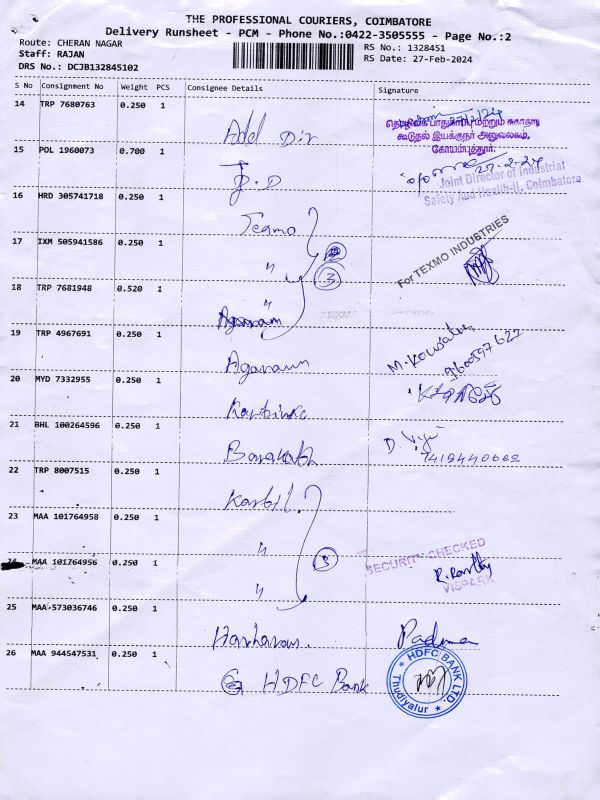 THE PROFESSIONAL COURIERS, COIMBATORE
Delivery Runsheet - PCM - Phone No.:0422-3505555 - Page No.:2
Route: CHERAN NAGAR
RS No.: 1328451
Staff: RAJAN
RS Date: 27-Feb-2024
DRS No.: DCJB132845102
S No Consignment No Weight PCS Consignee Details Signature
14 TRP 7680763 0.250 1
Add Dir
தொழிலக பாதுகாப்பு மற்றும் சுகாதார
கூடுதல் இயக்குநர் அலுவலகம்,
கோயம்புத்தூர்.
15 POL 1960073 0.700 1
J.D
27-2-24
Joint Director of Industrial
Safety And Health-II, Coimbatore
16 HRD 305741718 0.250 1
Texmo
For TEXMO INDUSTRIES
17 IXM 505941586 0.250 1
"
3
18 TRP 7681948 0.520 1
"
Aganam
19 TRP 4967691 0.250 1
Aganam
M. Kowsalya
20 MYD 7332955 0.250 1
21 BHL 100264596 0.250 1
Barakath
D. Viji
7419440688
22 TRP 8007515 0.250 1
Karbil.
23 MAA 101764958 0.250 1
"
3
SECURITY CHECKED
24 MAA 101764956 0.250 1
"
R. Parthy
25 MAA-573036746 0.250 1
Hariharan.
Padma
26 MAA 944547531 0.250 1
HDFC Bank
HDFC BANK LTD.
Thudiyalur